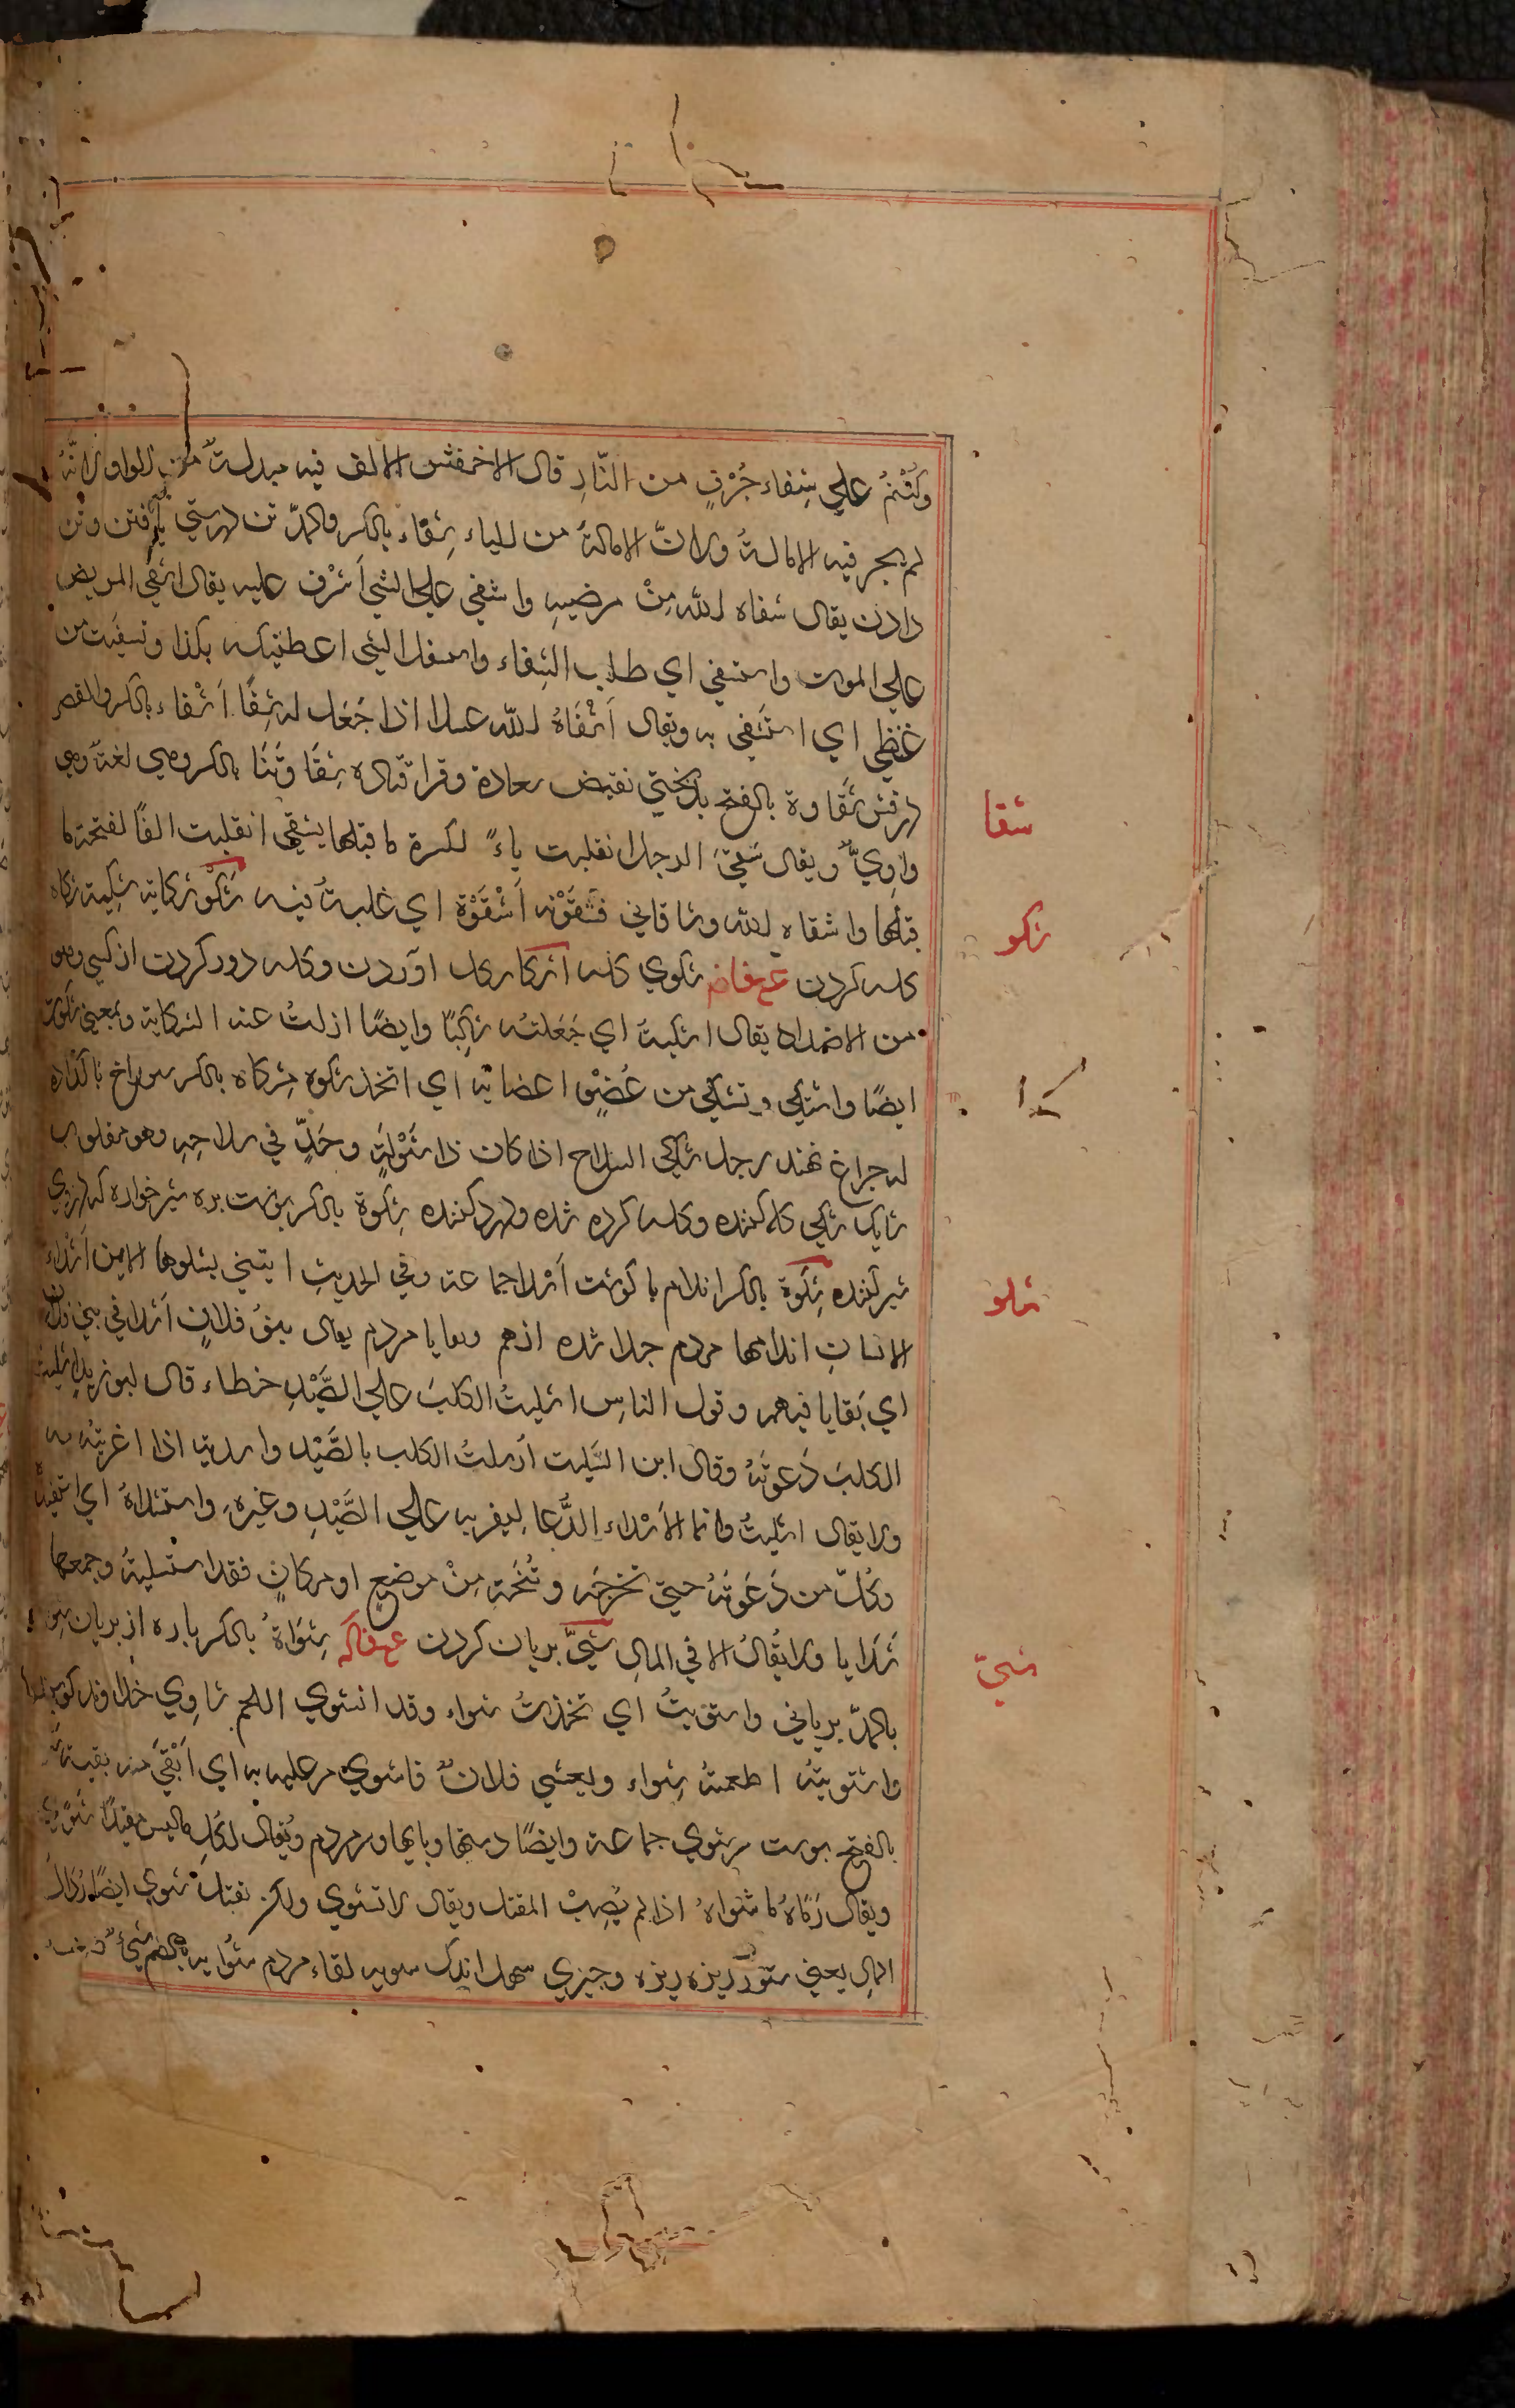 وكُنْتُمْ علي شفاء جُرْفٍ من النّارِ قال الاخفش الالف فيه مبدلة من الواو لانّهُ
لم يجر فيه الامالة ولانّ الامالة من الياء شفاء بالكسر والمدّ تن درستي يافتن وتن
دادن يقال شفاه الله مِنْ مرضِهِ واشفي علي الشئ اَشْرَف عليه يقال اشفي المريض
علي الموت واستشفي اي طلب الشِفاء واشفيتك الشئ اعطيتكه بكذا وتشفيت من
غيظي اي اشتفي به ويقال اَشْفَاهُ الله عسلا اذا جَعَل له شِفًا اشفاء بالكسر والقصر
درفش شَقاوة بالفتح بدبختي نقيض سعادة وقرا قتاده شِقَاوتَنَا بالكسر وهي لغة وهي
واوِيٌّ ويقال شَقيَ الرجل انقلبت ياءً لكسرة ما قبلها يشقي انقلبت الفًا لفتحة ما
قبلها واشقاه الله وشاقاني فشقَوْته اَشْقُوْهُ اي غلبتهُ فيه شَكْو شكاية شكية شكاه
كله كردن ع ف ا ض شكوي كله اشكا كله اوردن وكله دور كردن از كسي وهو
من الاضداد يقال اشكيتُ اي جَعَلتُه شاكيًا وايضًا ازلتُ عنه الشكاية وبمعني شكوت
ايضًا واشتكي وتشكي من عُضْوٍ اعضائه اي اتخذ شكوه مِشكاة بالكسر سوراخ ناكذاره
له جراغ نهند رجل شاكي السلاح اذا كان ذا شَوْكةٍ وحَدٍّ في سلاحِهِ وهو مقلوب
شايك شكي كله كننده وكله كرده شده ودرد كننده شكوة بالكسر بوست بره شير خواره كه درزوي
شير كننده شِلوة بالكسر اندام با كوشت اشلا جماعة وفي الحديث ايتني بشلوها الايمن اشلاء
الانسان اندامها مردم جدا شده ازهم وبقايا مردم يقال بنو فلانٍ اشلا في بني فلان
اي بَقايا فيهم وقول الناسِ اشليتُ الكلبَ علي الصَّيْدِ خطاء قال ابو زيد اشليت
الكلبَ دَعوتهُ وقال ابن السكيت اَرسلتُ الكلب بالصَّيْد واسدته اذا اغريتُه به
ولا يقال اشليتُ وانما الاشلاء الدُّعا ليغريه علي الصَّيْدِ وغيره واستشلاهُ اي
وكُلّ من دَعَوتهُ حتي تخرجَه وتُنَحّيه مِنْ موضعٍ او مكانٍ فقد استشليتهُ وجمعها
شلايا ولا يُقالُ الا في المال شَيّ بريان كردن ع ف ا ك شِوَاة بالكسر باره از بريان شواء
بالمدّ برياني واشتويتُ اي تخذتُ شواء وقد انشوي اللحم شاوي خداوند كوسپند
واشتويته اطعمتهُ شِواء وتعشي فلانٌ فاشوي من عليه به اي اَبْقيَ منه بقية
بالفتح بوست سر شوي جماعة وايضًا دستها وپايها وسر مردم ويُقال لكلِ ما ليس مقتلا شَوًي
ويقال رَمَاهُ فاشواهُ اذا لم يُصِبْ المقتل ويقال لا تشوي ولكن تقتل شوي ايضًا رُذالَ
المال يعني ستور ريزه ريزه وجيزي سهل اندك سويه لقاء مردم شُوايه بالضم شئ
شقا
شكو
شلو
شيّ